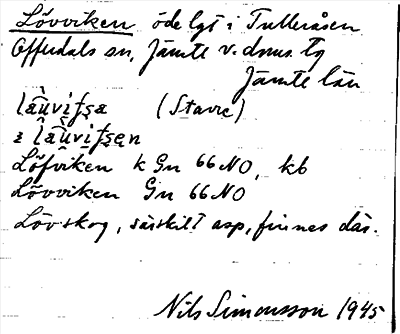 Lövviken öde lgt i Tulleråsen
Offerdals sn, Jämte v. dms. tg
Jämte län
(Stavre)
Löfviken k Gn 66 NO, kb
Lövviken Gn 66 NO
Lövskog, särskilt asp, finnes där.
Nils Simonsson 1945